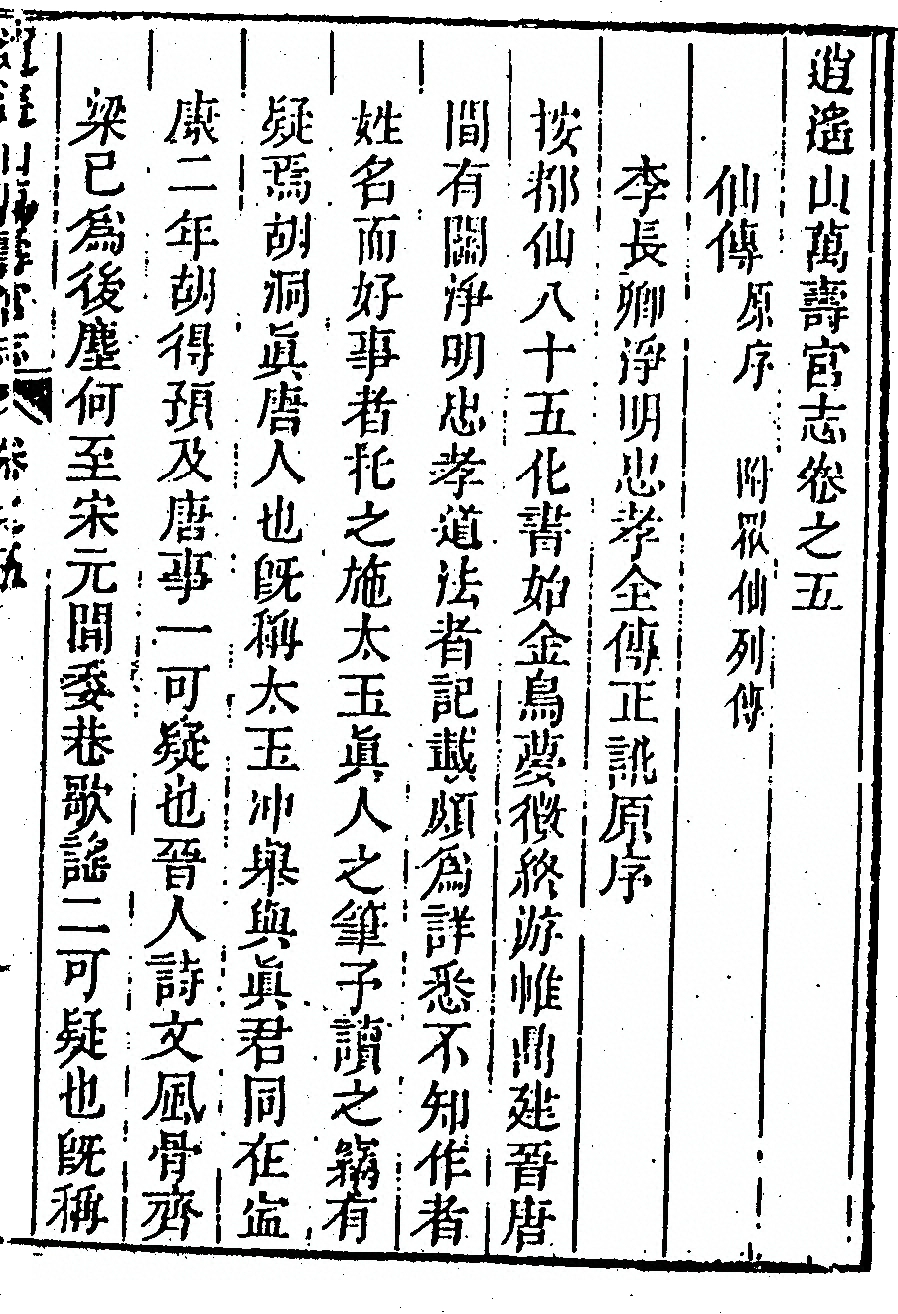 逍遙山萬壽宮志卷之五
仙傳 原序 附眾仙列傳
李長卿淨明忠孝全傳正訛原序
按郡仙八十五化書始金烏夢徵終游帷鼎建晉唐
間有關淨明忠孝道法者記載頗為詳悉不知作者
姓名而好事者托之施太玉眞人之筆予讀之竊有
疑焉胡洞眞唐人也旣稱太玉冲舉與眞君同在寍
康二年胡得預及唐事一可疑也晉人詩文風骨齊
梁已為後塵何至宋元間委巷歌謠二可疑也旣稱